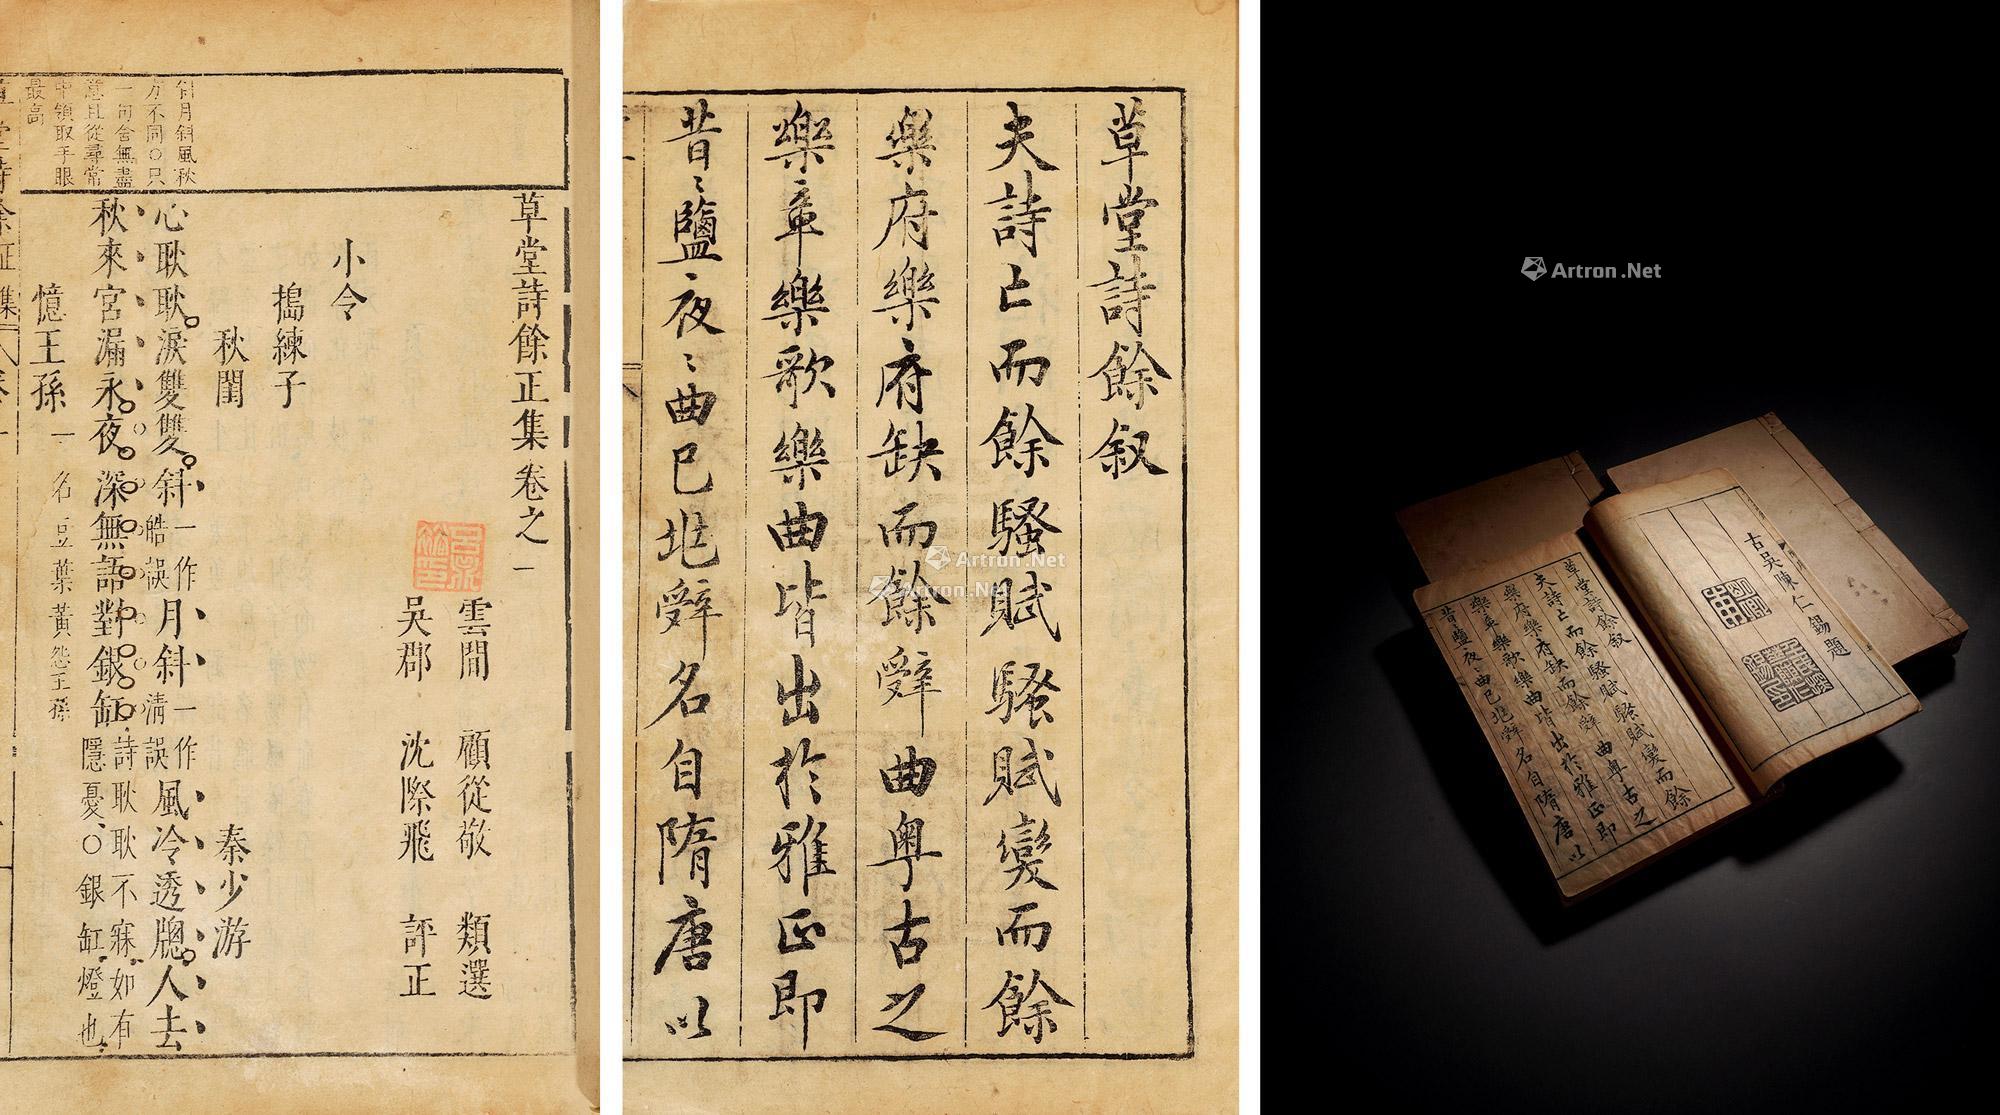 草堂詩餘正集卷之一
雲間 顧從敬 類選
吳郡 沈際飛 評正
小令
搗練子
秋閨 秦少游
心耿耿淚雙雙斜一作皓誤月斜一作清誤風冷透牕人去
秋來宮漏永夜深無語對銀缸詩耿耿不寐如有隱憂○銀缸燈也
憶王孫一名豆葉黃怨王孫
月斜風秋
方不同○只
一句含無盡
意且從尋常
中領取手眼
最高
草堂詩餘叙
夫詩亡而餘騷賦騷賦變而餘
樂府樂府缺而餘辭曲粵古之
樂章樂歌樂曲皆出於雅正即
昔昔鹽夜夜曲已兆辭名自隋唐以
Artron.Net
Artron.Net
Artron.Net
古吳陳仁錫題
草堂詩餘叙
夫詩亡而餘騷賦騷賦變而餘
樂府樂府缺而餘辭曲粵古之
樂章樂歌樂曲皆出於雅正即
昔昔鹽夜夜曲已兆辭名自隋唐以